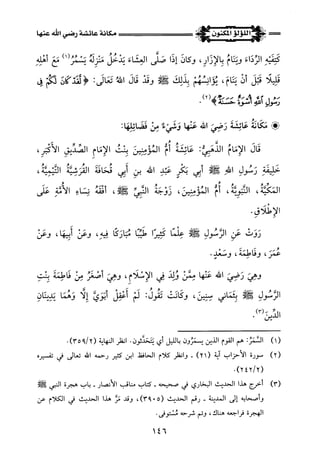 مكانة عائشة رضي الله عنها
اللؤلؤ المكنون
كَتِفَيْهِ الرِّدَاءَ ويَنَامُ بالإِزَارِ، وكانَ إذَا صَلَّى العِشَاءَ يَدْخُلُ مَنْزِلَهُ يَسْمُرُ(١) مَعَ أهْلِهِ
قَلِيلًا قَبْلَ أنْ يَنَامَ، يُؤَانِسُهُمْ بِذَلِكَ ﷺ وقَدْ قَالَ اللهُ تَعَالَى: ﴿لَّقَدْ كَانَ لَكُمْ فِى
رَسُولِ اللَّهِ أُسْوَةٌ حَسَنَةٌ﴾(٢).
◉ مَكَانَةُ عَائِشَةَ رَضِيَ الله عَنْهَا وَشَيْءٌ مِنْ فَضَائِلِهَا:
قَالَ الإمَامُ الذَّهَبِيُّ: عَائِشَةُ أُمُّ المُؤْمِنِينَ بِنْتُ الإمَامِ الصِّدِّيقِ الأكْبَرِ،
خَلِيفَةِ رَسُولِ اللهِ ﷺ أَبِي بَكْرٍ عَبْدِ اللهِ بنِ أَبِي قُحَافَةَ القُرَشِيَّةُ التَّيْمِيَّةُ،
المَكِّيَّةُ، النَّبَوِيَّةُ، أُمُّ المُؤْمِنِينَ، زَوْجَةُ النَّبِيِّ ﷺ، أفْقَهُ نِسَاءِ الأُمَّةِ عَلَى
الإطْلَاقِ.
رَوَتْ عَنِ الرَّسُولِ ﷺ عِلْمًا كَثِيرًا طَيِّبًا مُبَارَكًا فِيهِ، وعَنْ أبِيهَا، وعَنْ
عُمَرَ، وفَاطِمَةَ، وسَعْدٍ.
وهِيَ رَضِيَ الله عَنْها مِمَّنْ وُلِدَ في الإِسْلَامِ، وهِيَ أصْغَرُ مِنْ فَاطِمَةَ بِنْتِ
الرَّسُولِ ﷺ بِثَمَانِي سِنِينَ، وكَانَتْ تَقُولُ: لَمْ أَعْقِلْ أبَوَيَّ إِلَّا وَهُمَا يَدِينَانِ
الدِّينَ(٣).
(١) السُّمَّرُ: هم القوم الذين يسمُرُون بالليل أي يَتَحَدَّثون. انظر النهاية (٣٥٩/٢).
(٢) سورة الأحزاب آية (٢١) ـ وانظر كلام الحافظ ابن كثير رحمه الله تعالى في تفسيره
(٢٤٢/٢)
(٣) أخرج هذا الحديث البخاري في صحيحه ـ كتاب مناقب الأنصار ـ باب هجرة النبي ﷺ
وأصحابه إلى المدينة ـ رقم الحديث (٣٩٠٥)، وقد مَرَّ هذا الحديث في الكلام عن
الهجرة فراجعه هناك، وتم شرحه مُستوفى.
١٤٦